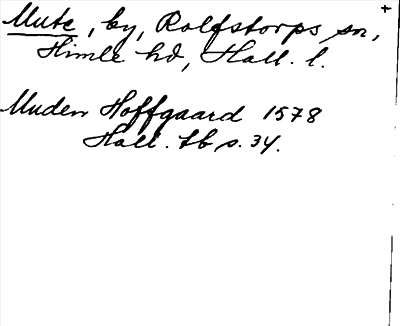 Mute, by, Rolfstorps sn,
Himle hd, Hall. l.
Muden Hoffgaard 1578
Hall. Lb s. 34.